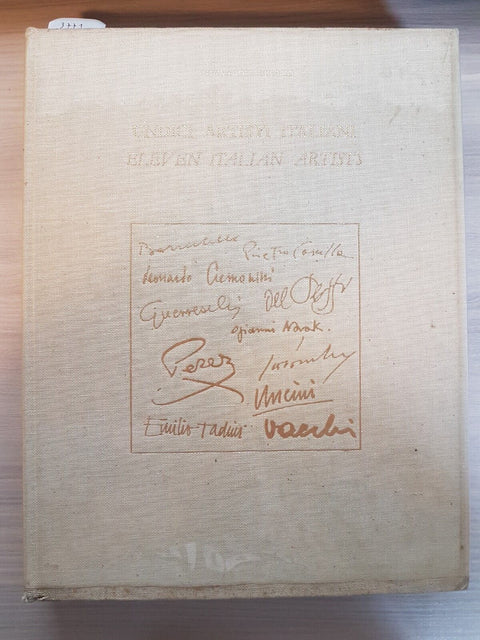 UNDICI ARTISTI ITALIANI
ELEVEN ITALIAN ARTISTS
Pietro Cascella
Leonardo Cremonini
Guerreschi Del Pezzo
Gianni Novak.
Perez
Uncini
Emilio Tadini Vacchi